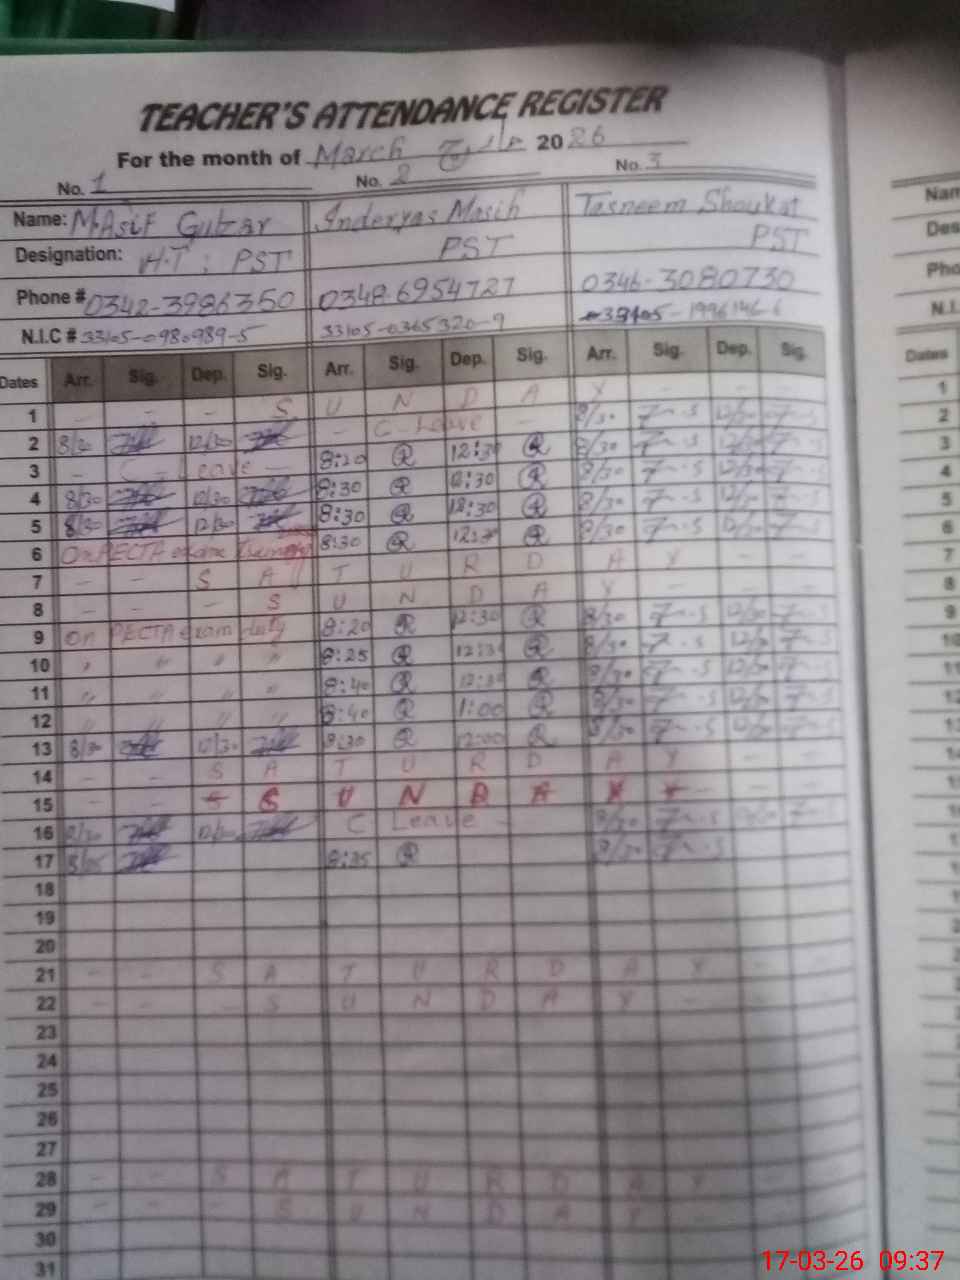 TEACHER'S ATTENDANCE REGISTER
For the month of March 2026
No. 1 No. 2 No. 3
Name: M.Asif Gulzar Inderyas Masih Tasneem Shoukat
Designation: H.T ; PST PST PST
Phone # 0342-3986350 0348-6954727 0346-3080730
N.I.C # 33105-0980989-5 33105-0365320-9 33105-1996146-6
Dates Arr. Sig. Dep. Sig. Arr. Sig. Dep. Sig. Arr. Sig. Dep. Sig.
1 - - - S U N D A Y - - -
2 8/30 12/30 - C-Leave - 8/30 12/30
3 - C - Leave - 8:20 12:30 8/30 12/30
4 8/30 12/30 8:30 12:30 8/30 12/30
5 8/30 12/30 8:30 12:30 8/30 12/30
6 On PECTA exam 8:30 8/30 12/30
7 - - S A T U R D A Y - -
8 - - - S U N D A Y - - -
9 On PECTA exam duty 8:20 12:30 8/30 12/30
10 " " " " 8:25 8/30
11 " " " " 8:40 8/30 12/30
12 " " " " 8:40 1:00 8/30 12/30
13 8/30 12/30 8:30 12:00 8/30
14 - - S A T U R D A Y - -
15 - - S U N D A Y - - -
16 8/30 C Leave - 8/30
17 8:25 8/30
18
19
20
21 - - S A T U R D A Y - -
22 - - - S U N D A Y - - -
23
24
25
26
27
28 - - S A T U R D A Y - -
29 - - - S U N D A Y - - -
30
31
Dates
1
2
3
4
5
6
7
8
9
10
11
17-03-26 09:37